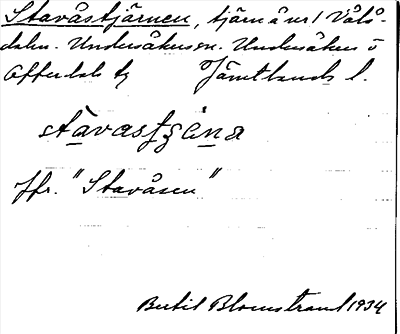 Stavåstjärnen, tjärn å nr 1 Vålå-
dalen. Undersåkers sn. Undersåkers o
Offerdals tg Jämtlands l.
stavastʃæ̀na
Jfr. "Stavåsen"
Bertil Blomstrand 1934